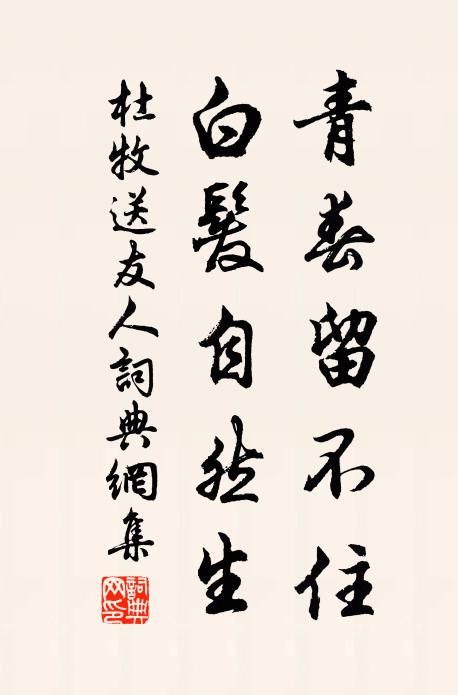 青春留不住
白髮自然生
杜牧送友人詞典網集
詞典
网印